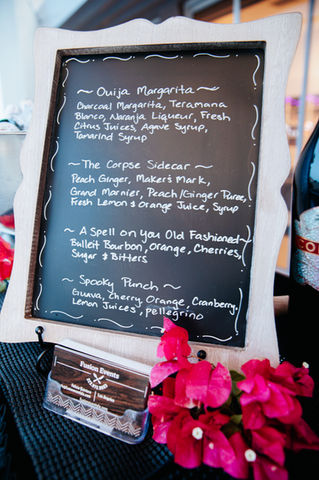 ~ Ouija Margarita ~
Charcoal Margarita, Teramana
Blanco, Naranja Liqueur, Fresh
Citrus Juices, Agave Syrup,
Tamarind Syrup
~ The Corpse Sidecar ~
Peach Ginger, Maker's Mark,
Grand Marnier, Peach/Ginger Puree,
Fresh Lemon & Orange Juice, Syrup
~ A Spell on you Old Fashioned ~
Bulleit Bourbon, Orange, Cherries,
Sugar & Bitters
~ Spooky Punch ~
Guava, Cherry, Orange, Cranberry,
Lemon Juices, pellegrino
Fusion Events